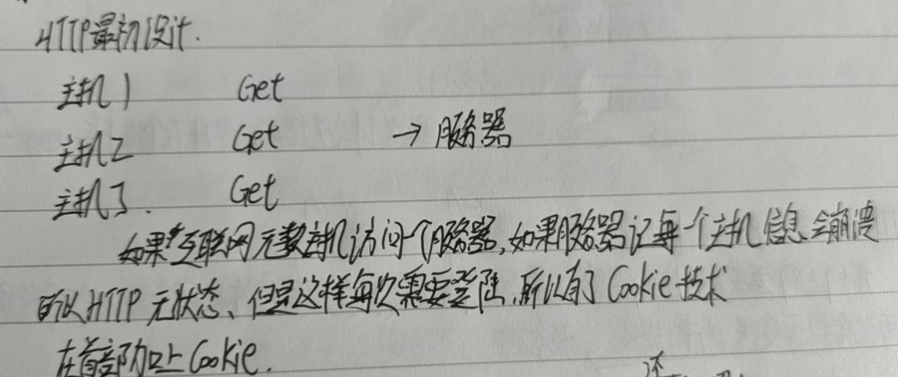 HTTP最初设计.
主机1 Get
主机2 Get → 服务器
主机3. Get
如果互联网无数主机访问一个服务器,如果服务器记每个主机信息会崩溃
所以HTTP无状态、但是这样每次需要登陆,所以有了Cookie技术
在首部加上Cookie.
还